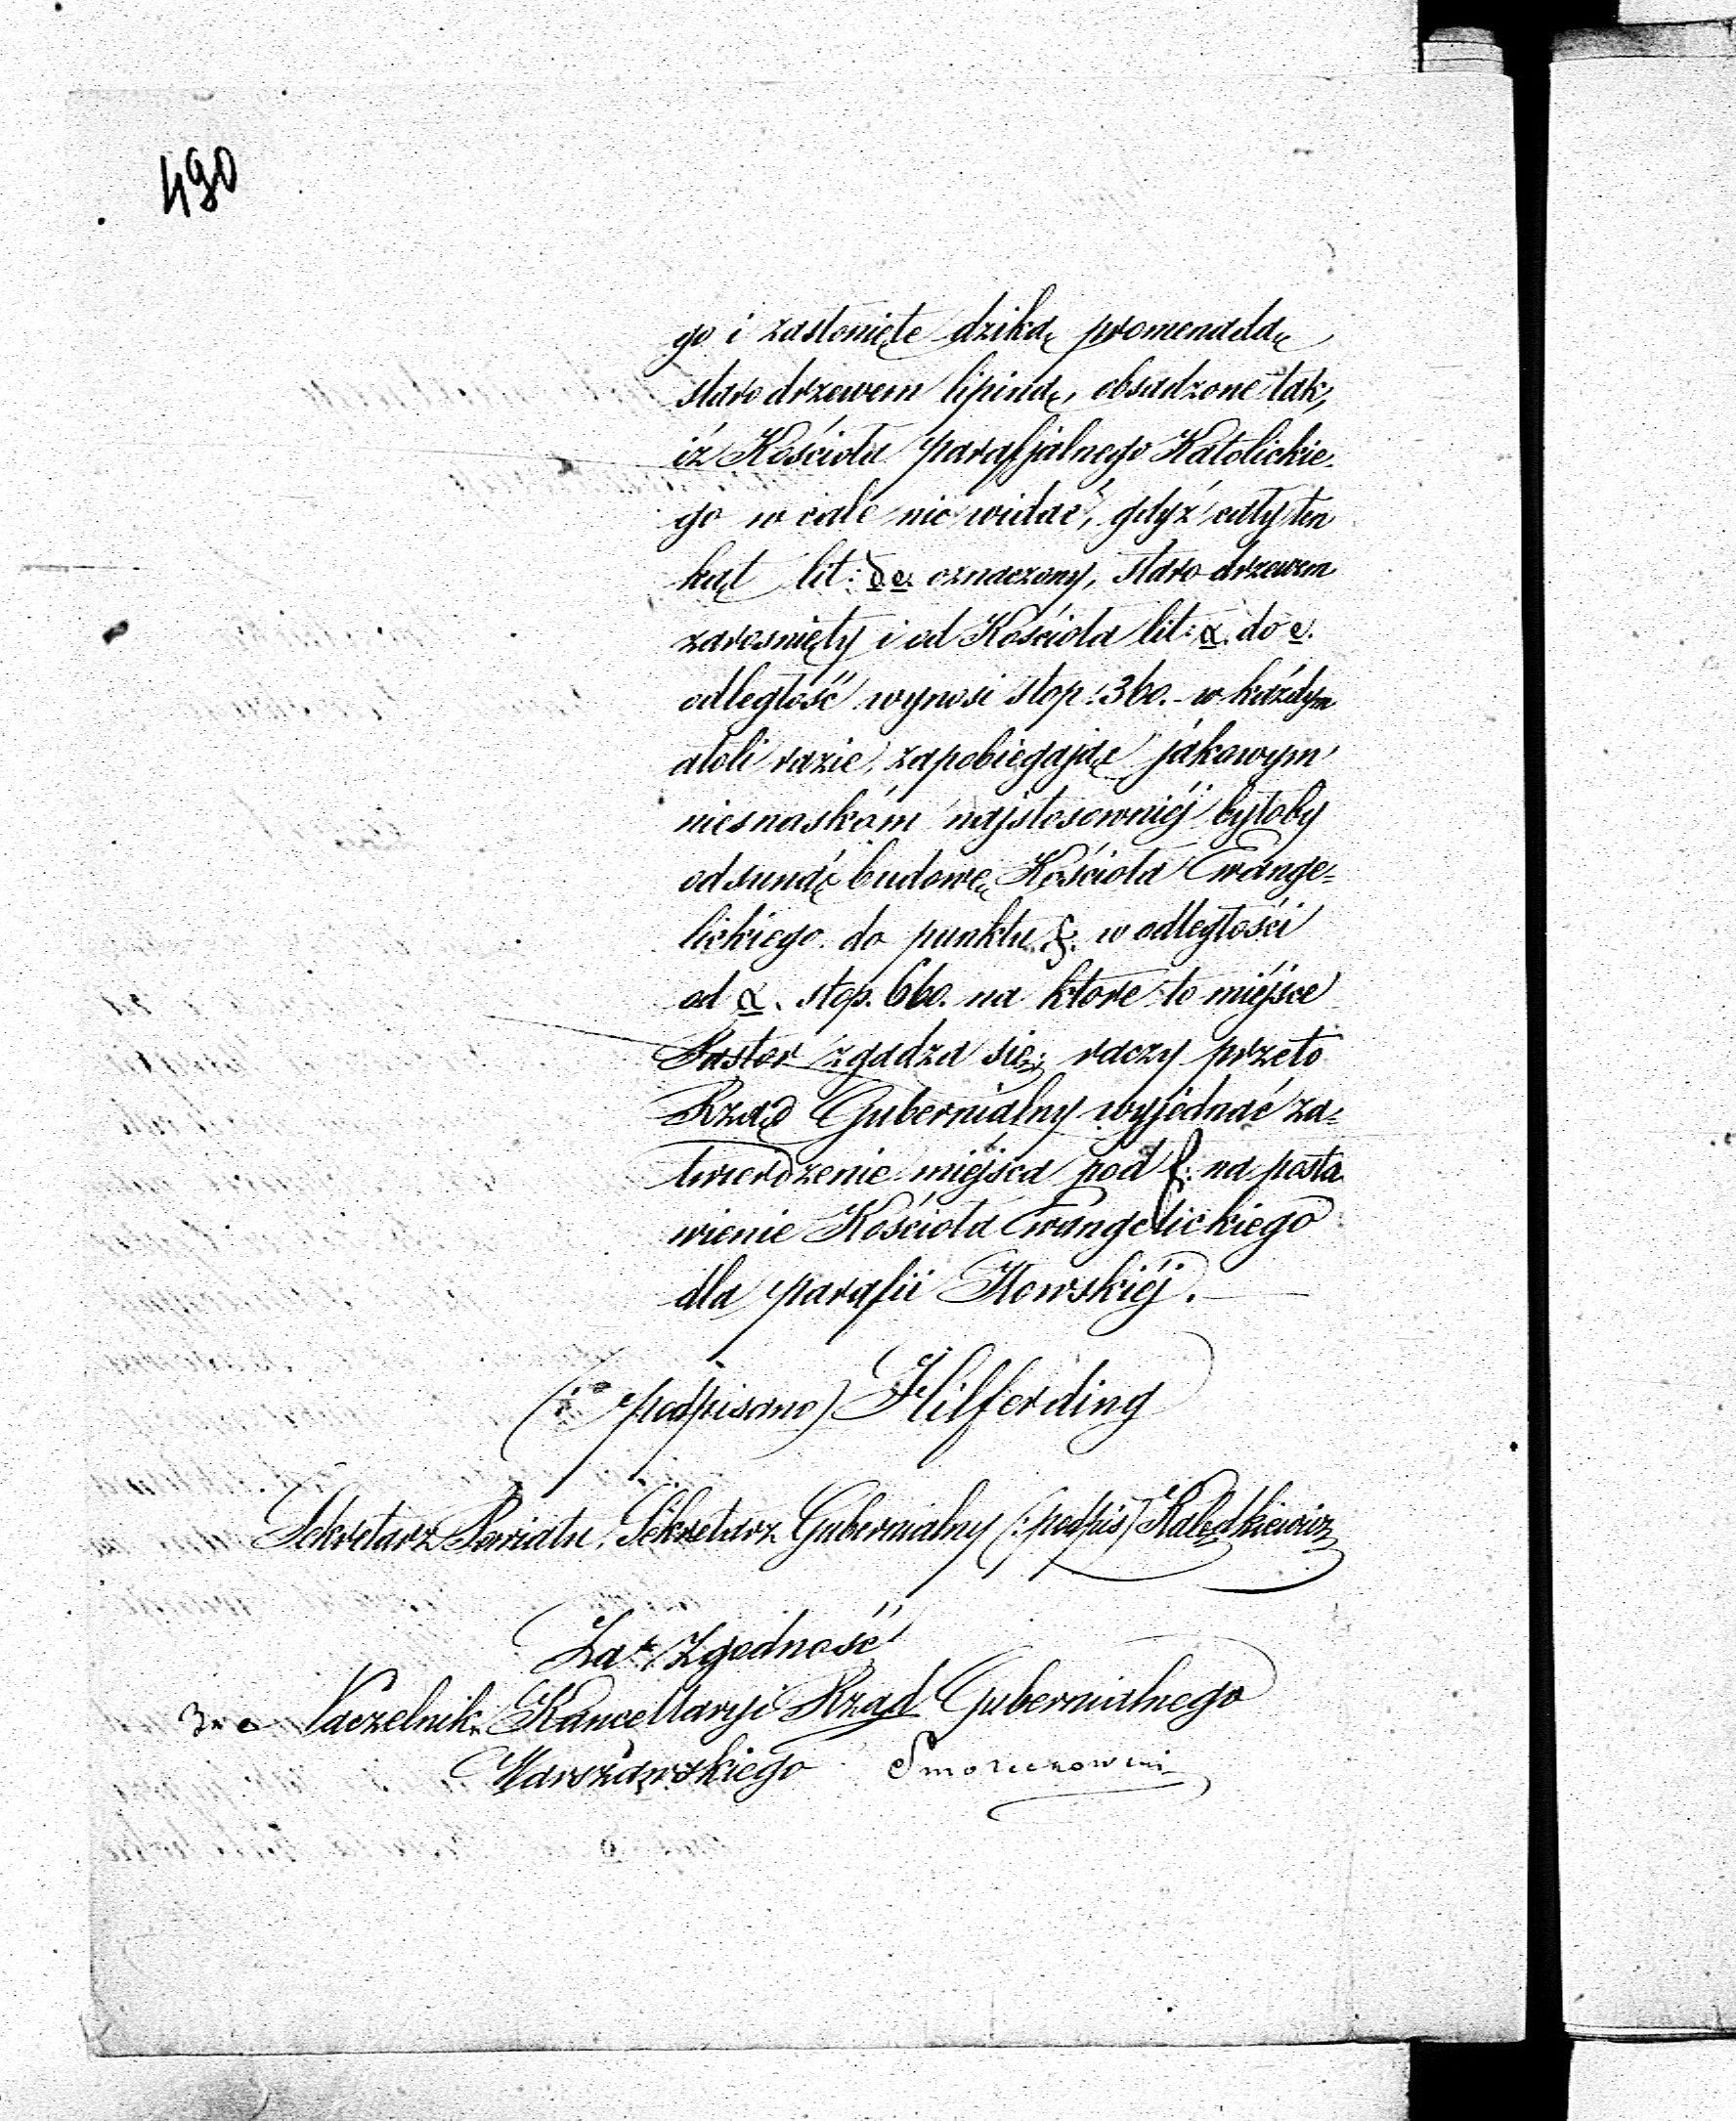 490
go i zasłonięte dziką promenadą
staro drzewem lipiną, obsadzone tak,
iż Kościoła parafjalnego Katolickie-
go w cale nie widać, gdyż cały ten
kąt lit: d e. oznaczony, staro drzewem
zarosnięty i od Kościoła lit: a. do e.
odległość wynosi stop: 360. – w każdym
atoli razie, zapobiegając jakowym
niesnaskóm najstosowniéj byłoby
odsunąć budowę Kościoła Ewange=
lickiego do punktu f. w odległości
od a. stop. 660. na ktore to miéjsce
Pastor zgadza się; raczy przeto
Rząd Gubernialny wyjednać za=
twierdzenie miéjsca pod f. na posta
wienie Kościoła Ewangelickiego
dla parafii Iłowskiéj. —
(: podpisano) Hilferding
Sekretarz Powiatu, Sekretarz Gubernialny (: podpis)
Za Zgodność
Naczelnik Kancellaryi Rząd Gubernialnego
Warszawskiego